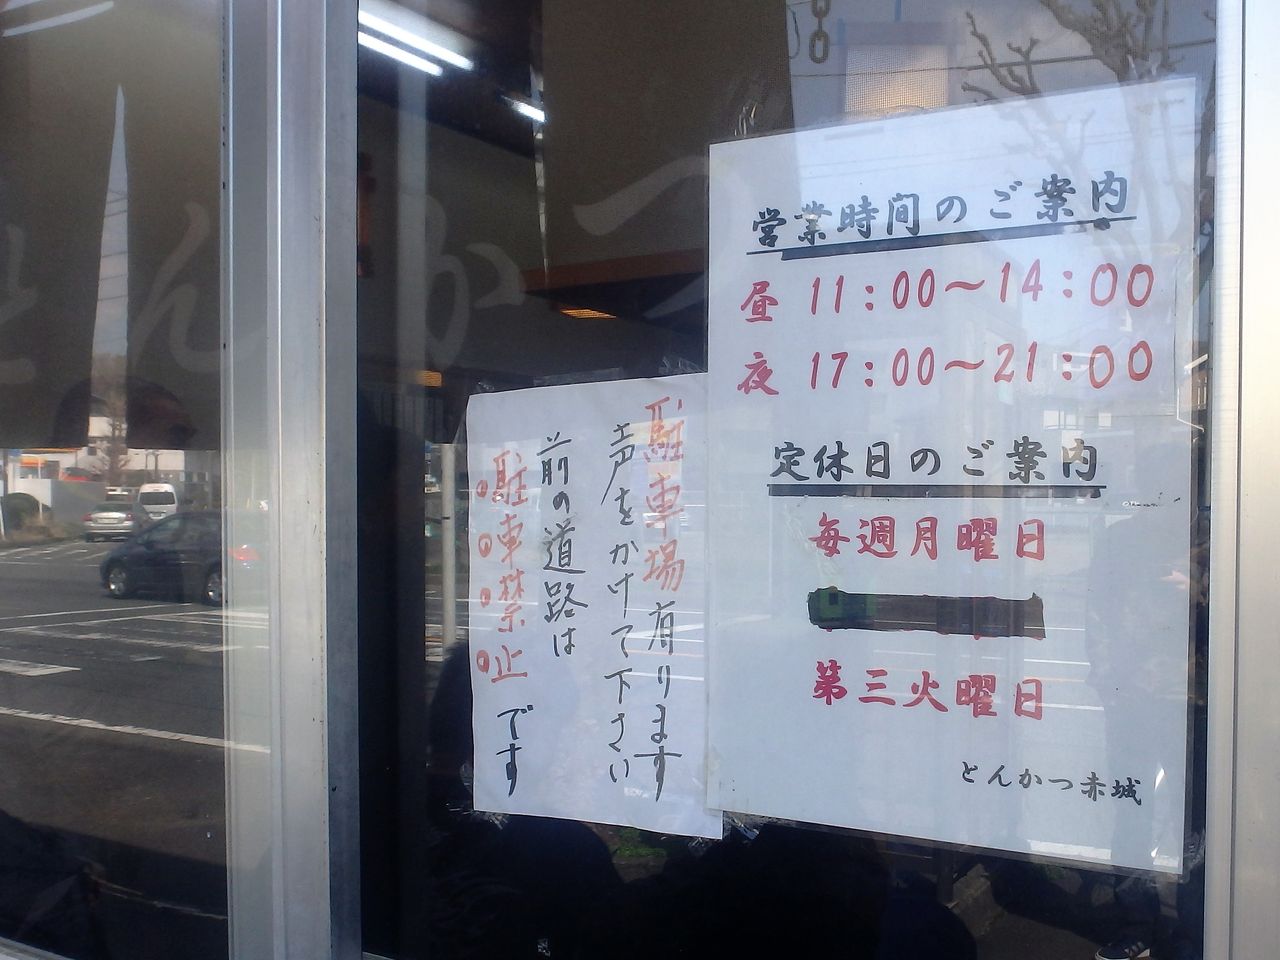 営業時間のご案内
昼 11:00～14:00
夜 17:00～21:00
定休日のご案内
毎週月曜日
第三火曜日
とんかつ赤城
駐車場有ります
声をかけて下さい
前の道路は
駐車禁止です
とんかつ